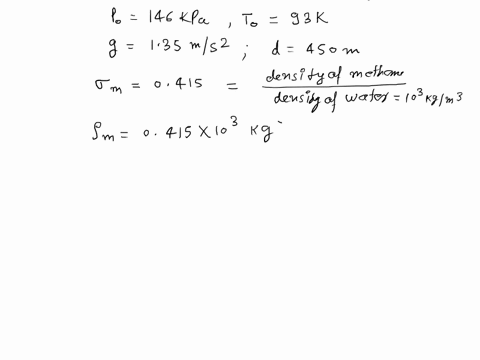 P₀ = 146 KPa , T₀ = 93K
g = 1.35 m/s² ; d = 450 m
σm = 0.415 = density of methane / density of water = 10³ kg/m³
ρm = 0.415 × 10³ kg